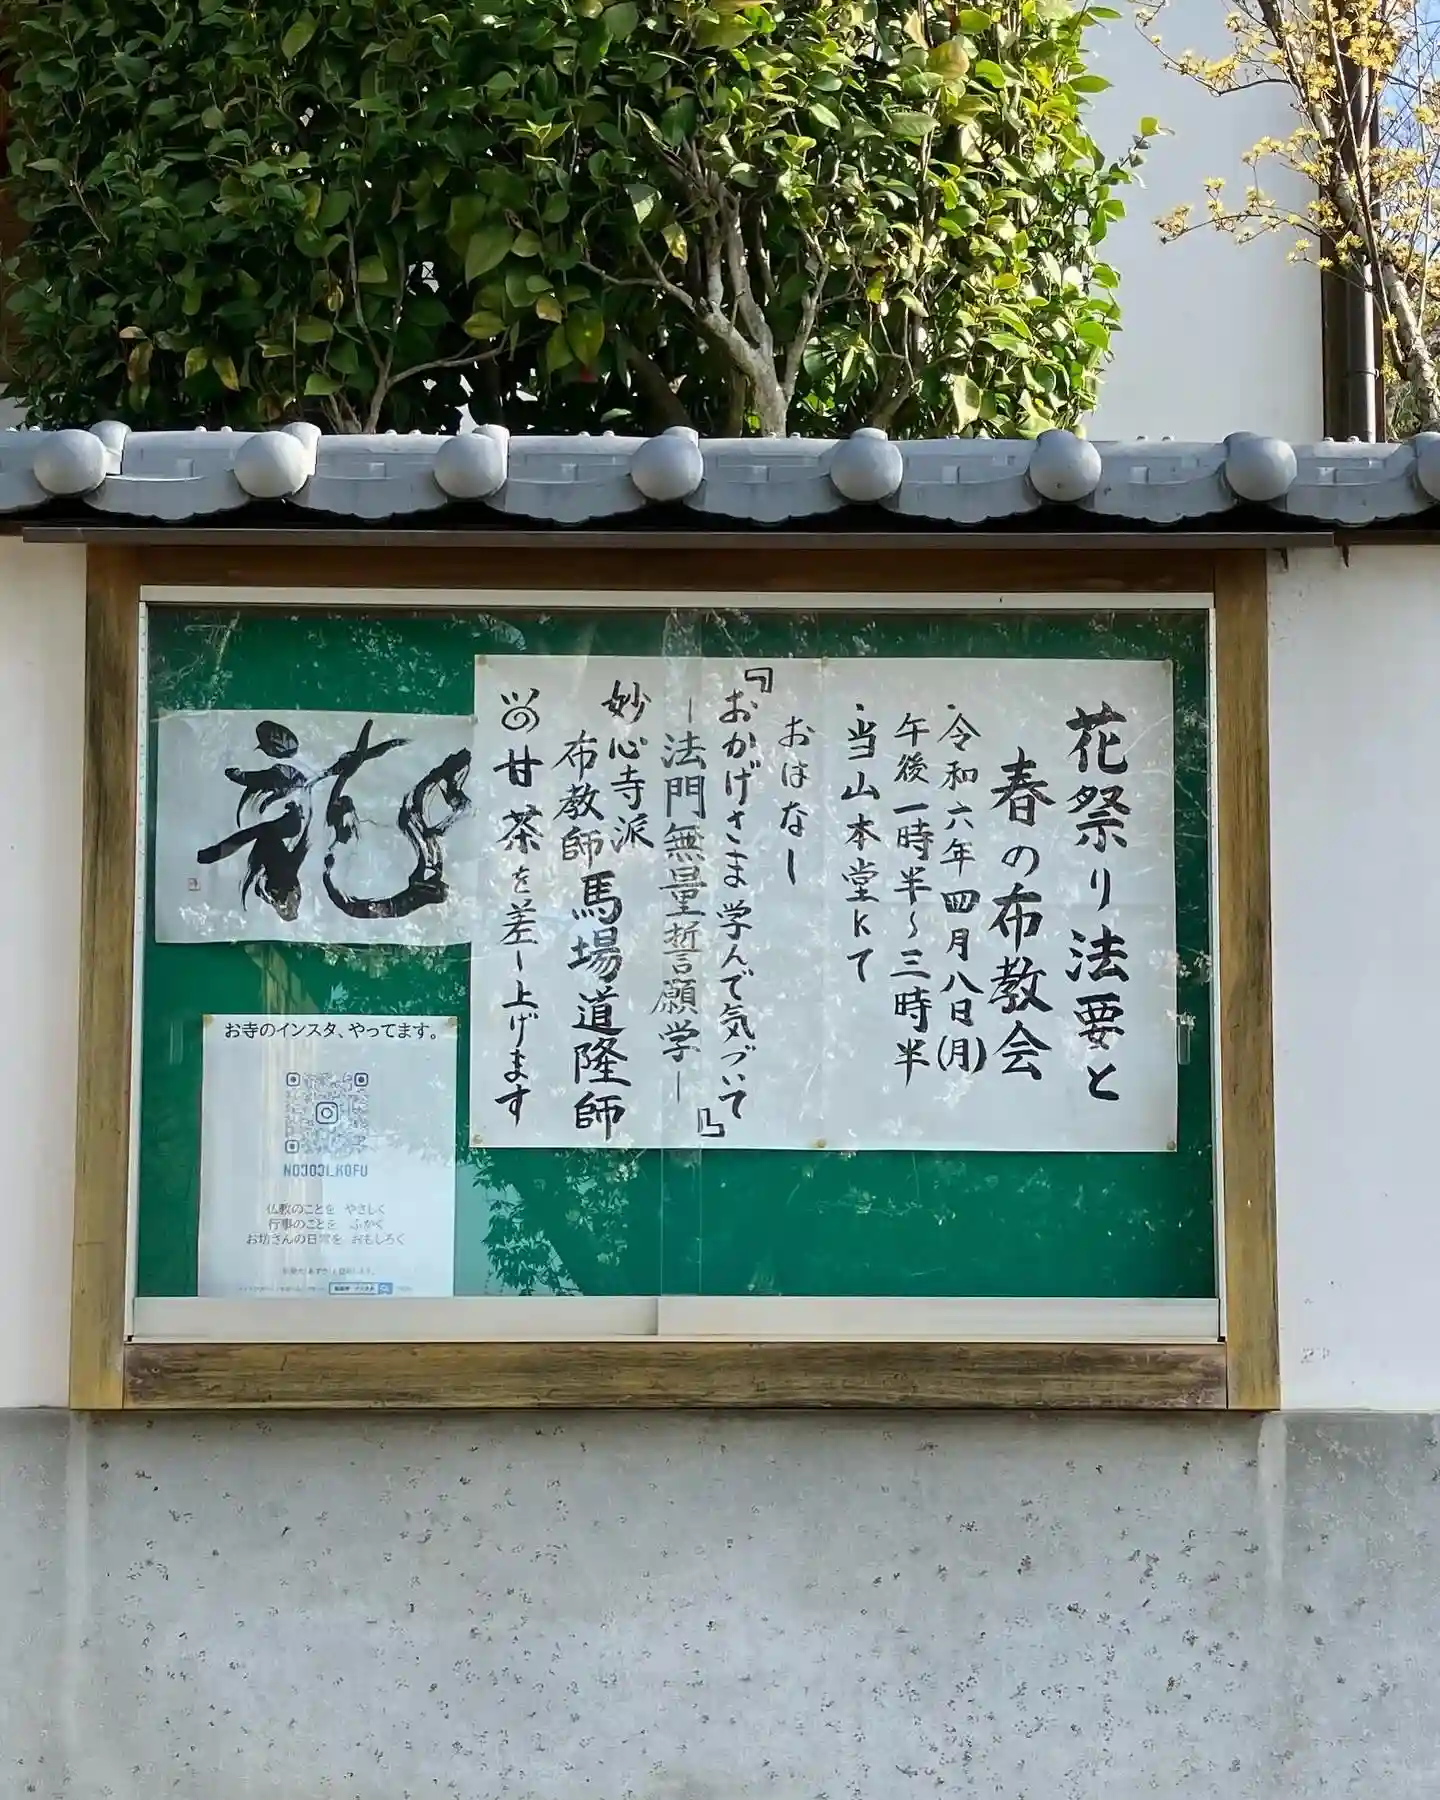 花祭り法要と
春の布教会
・令和六年四月八日(月)
午後一時半～三時半
・当山本堂にて
おはなし
『おかげさま学んで気づいて
－法門無量誓願学－』
妙心寺派
布教師 馬場道隆師
甘茶を差し上げます
龍
お寺のインスタ、やってます。
NOJOJI_KOFU
仏教のことを やさしく
行事のことを ふかく
お坊さんの日常を おもしろく